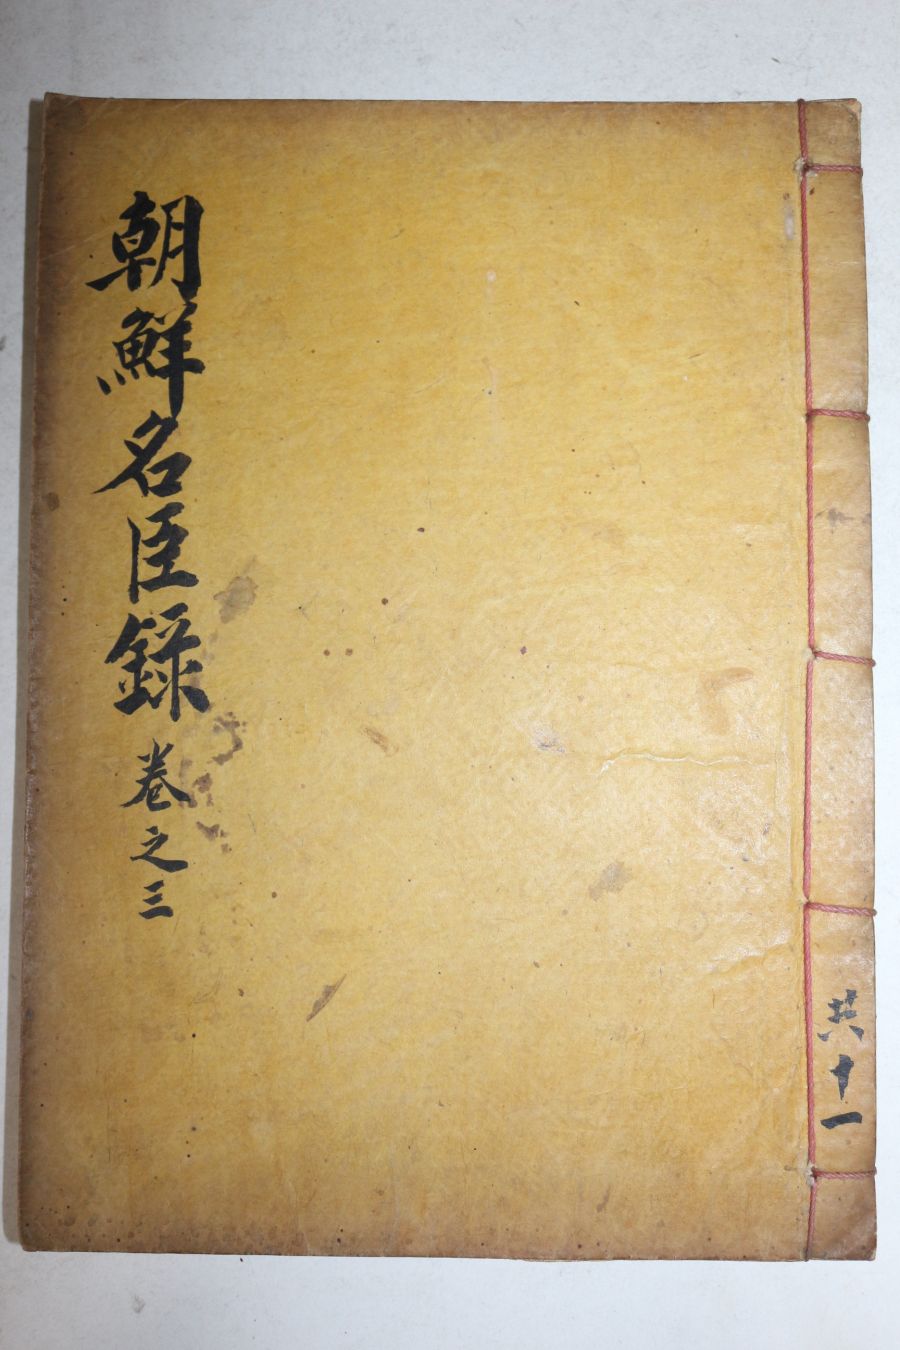 朝鮮名臣錄 卷之三
共十一